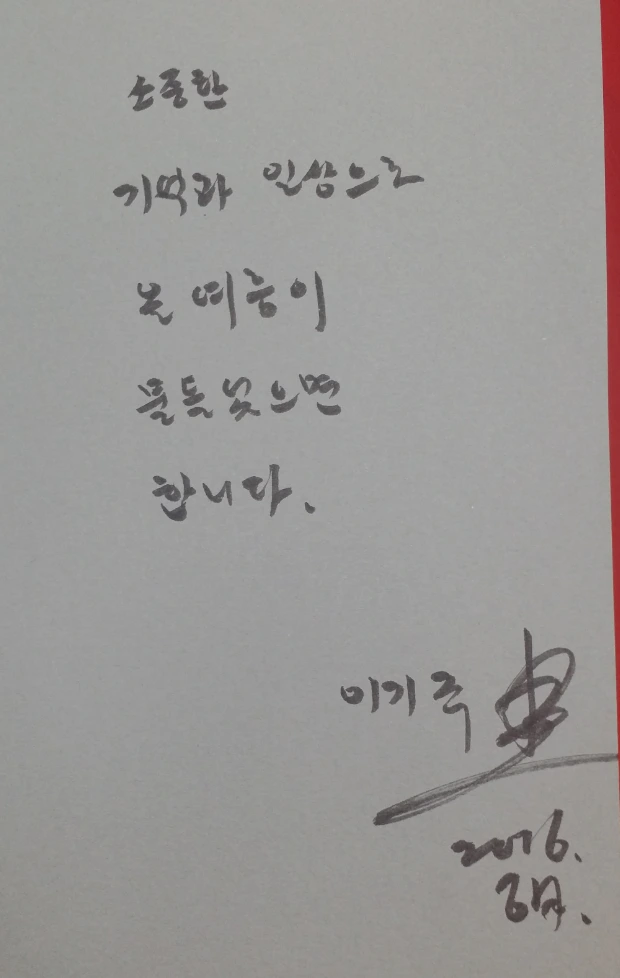 소중한
기억과 일상으로
올 여름이
물들었으면
합니다.
이기주
2016.
6月.